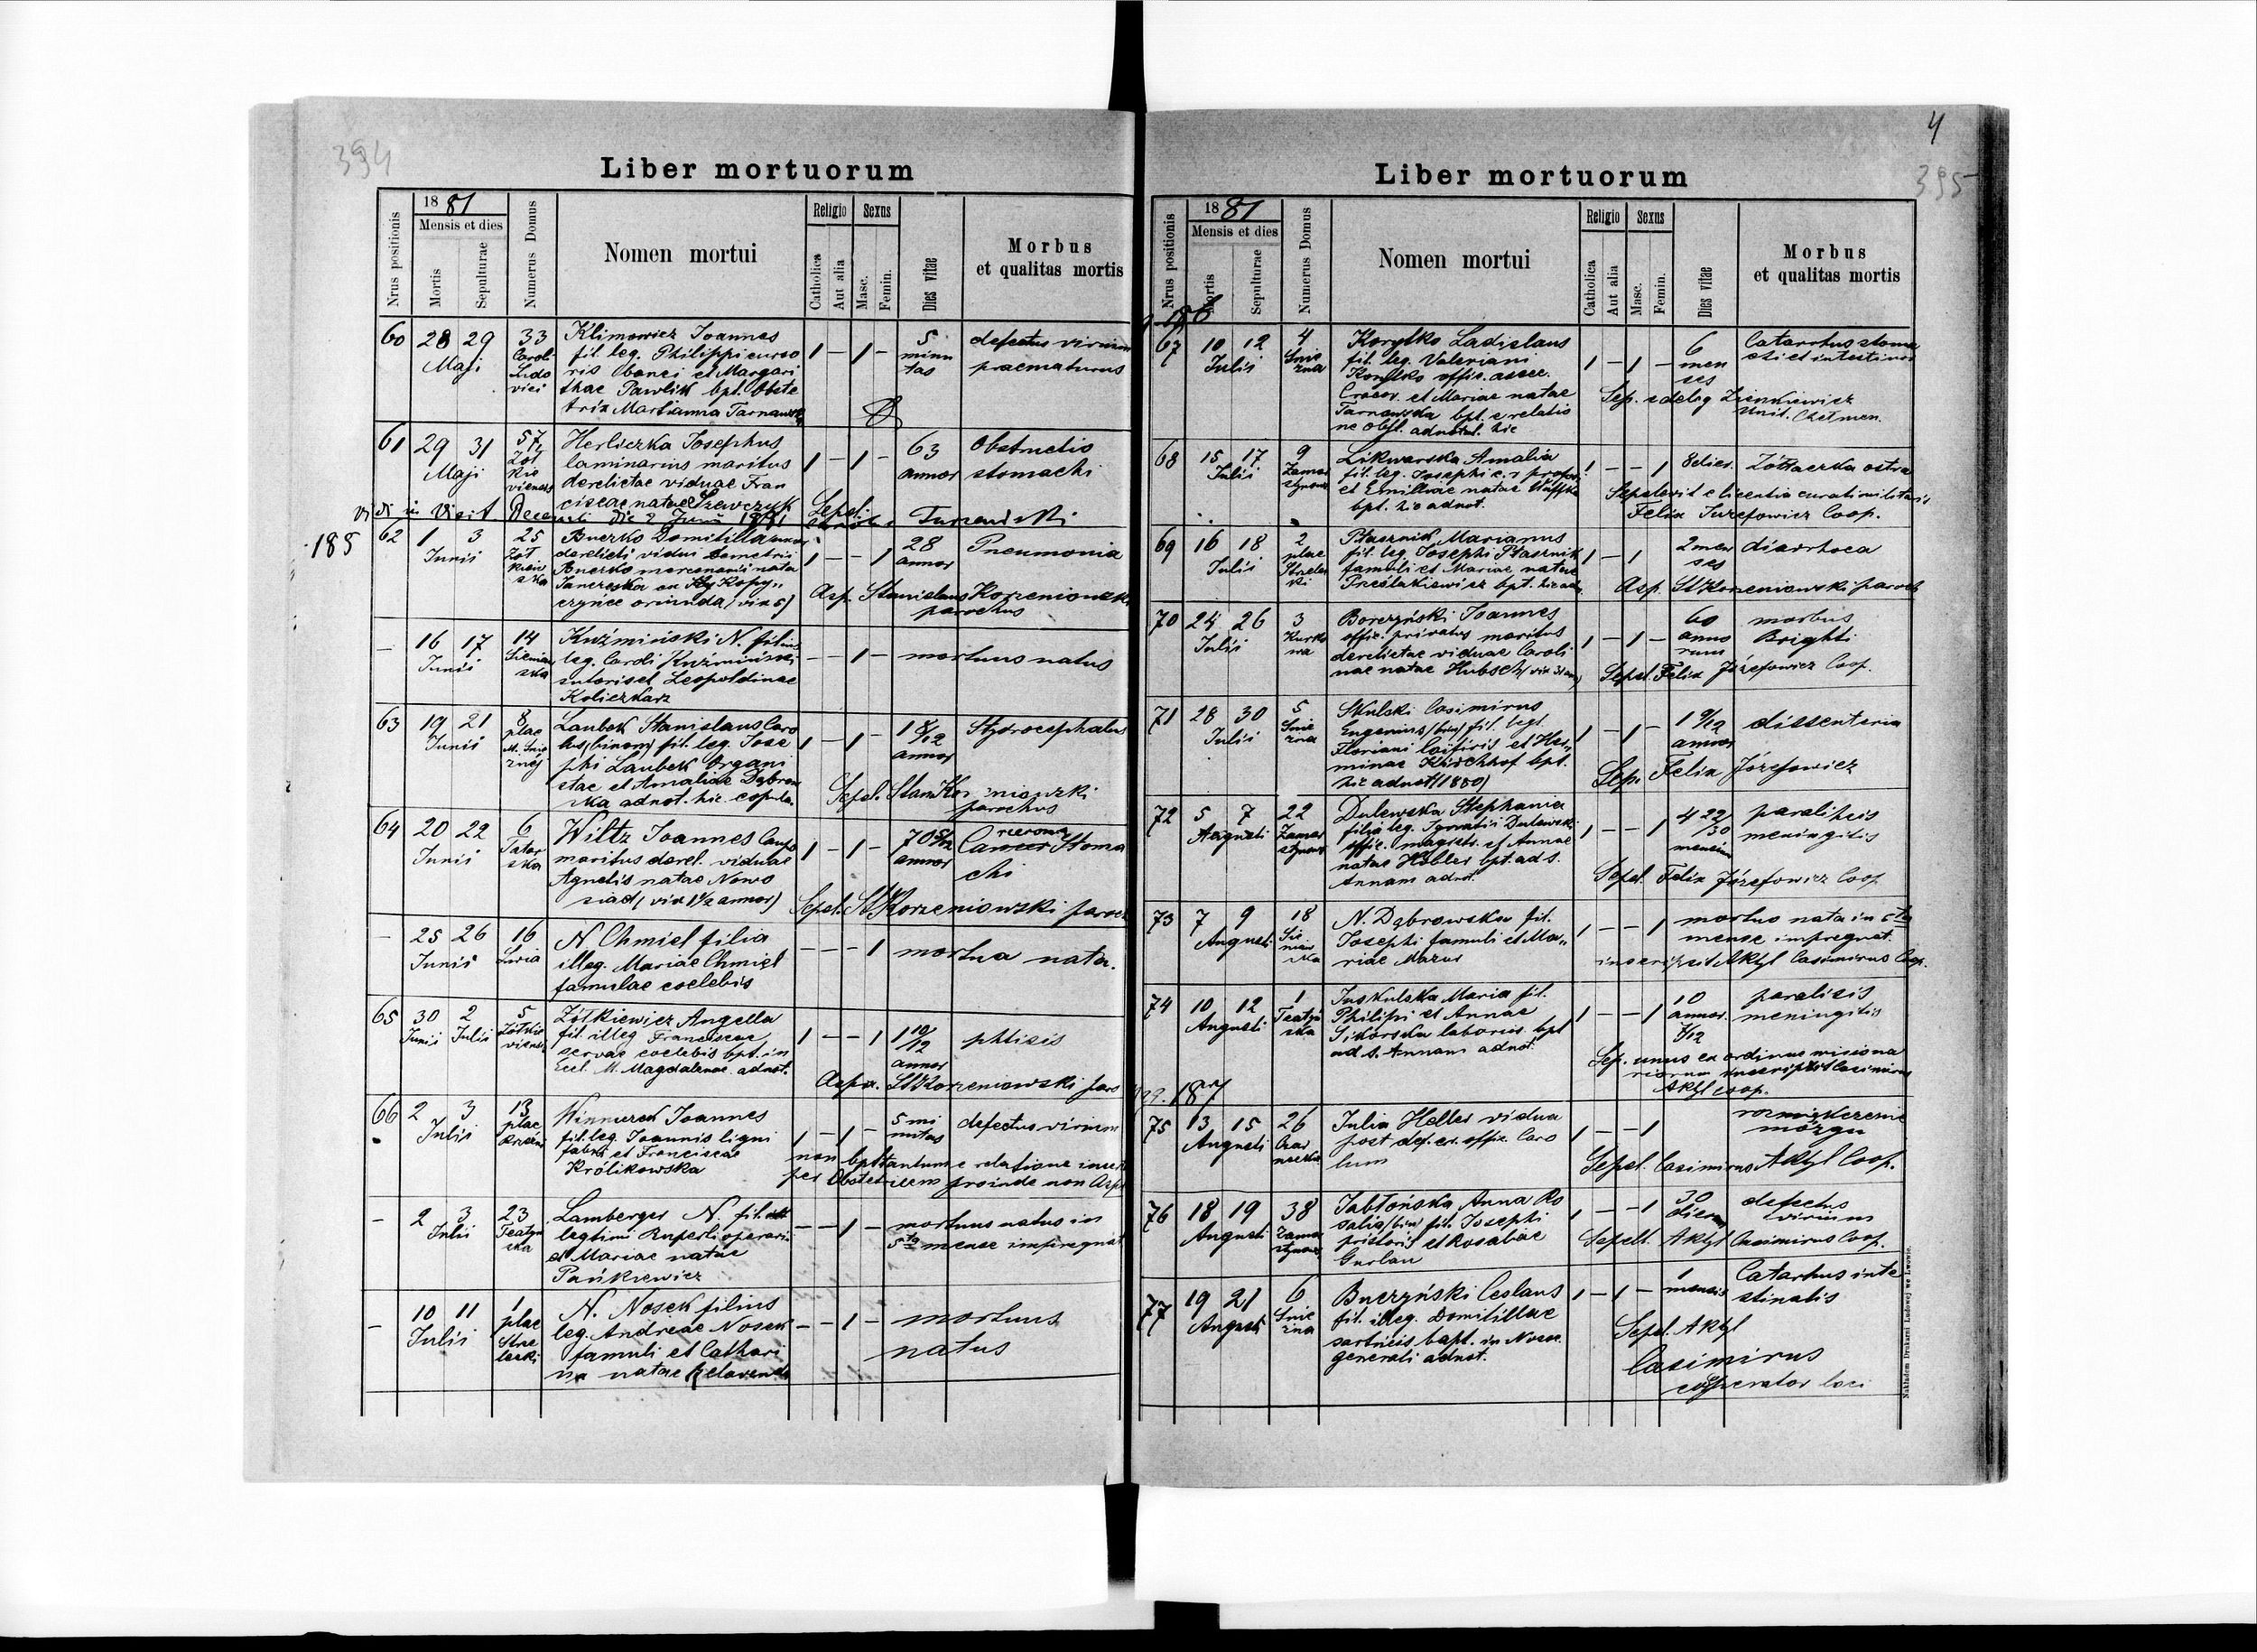 394
Liber mortuorum
Nrus positionis
1881
Mensis et dies
Mortis
Sepulturae
Numerus Domus
Nomen mortui
Religio
Catholica
Aut alia
Sexus
Masc.
Femin.
Dies vitae
Morbus
et qualitas mortis
60
28 29
Maji
33
Caroli
Ludo
vici
Klimowicz Joannes
fil. leg. Philippi curso
ris et Margari
thae Pawlik bpt. Obste
trix Marianna Tarnawska
1 – 1 –
5
minu
tas
defectus virium
praematurus
61
29 31
Maji
57
Żół
kie
viensis
Herliczka Josephus
laminarius maritus
derelictae viduae Fran
ciscae natae Szewczyk
1 – 1 –
63
annor
Obstructio
stomachi
Sepel.
vidi in visit. Decanali die 2 Junii 1881
185
62
1 3
Junii
25
Żół
kiew
ska
Buczko Domitilla
derelicti vidui Demetrii
Buczko mercenarii nata
Janczeska ex Kopy„
czyńce oriunda (vix 5)
1 – – 1
28
annor
Pneumonia
Asp. Stanislaus Korzeniowski
parochus
–
16 17
Junii
14
Sieniaw
ska
Kuźmiński N. filius
leg. Caroli Kuźmiński
sutoris et Leopoldinae
Koliczkarz
– – 1 –
mortuus natus
63
19 21
Junii
8
plac
M. Śnie
żnej
Laubek Stanislaus Caro
lus (binom) fil. leg. Jose
phi Laubek Organi
stae et Amaliae Dąbrow
ska adnot. hic. copula.
1 – 1 –
1 8/12
annor
Hydrocephalus
Sepel. Stan Korzeniowski
parochus
64
20 22
Junii
6
Tatar
ska
Wiltz Joannes Caupo
maritus derel. viduae
Agnetis natae Nowo
siad (vix 1½ annor)
1 – 1 –
70 5/12
annor
Cancer Stoma
chi
Sepel. St Korzeniowski paroch
–
25 26
Junii
16
Lwia
N Chmiel filia
illeg. Mariae Chmiel
famulae coelebis
– – – 1
mortua nata.
65
30 2
Junii Julii
5
Żółkie
viensis
Żółkiewicz Angella
fil. illeg Franciscae
servae coelebis bpt. in
Eccl. M. Magdalenae adnot.
1 – – 1
1 10/12
annor
phtisis
Aspex. St Korzeniowski paro
66
2 3
Julii
13
plac
Winnurek Joannes
fil. leg. Joannis ligni
fabri et Franciscae
Królikowska
1 – 1 –
5 mi
nutas
defectus virium
non bpt tantum e relatione inscr
per Obstetricem proinde non Asp
–
2 3
Julii
23
Teatyń
ska
Lamberger N. fil.
legtimi Ruperti operarii
et Mariae natae
Pańkiewicz
– – 1 –
mortuus natus in
5to mense impregnat
–
10 11
Julii
1
plac
Strze
lecki
N. Nosek filius
leg. Andreae Nosek
famuli et Cathari
na natae
– – 1 –
mortuus
natus
4
395
Liber mortuorum
Nrus positionis
1881
Mensis et dies
Mortis
Sepulturae
Numerus Domus
Nomen mortui
Religio
Catholica
Aut alia
Sexus
Masc.
Femin.
Dies vitae
Morbus
et qualitas mortis
186
67
10 12
Julii
4
Śnie
żna
Korytko Ladislaus
fil. leg. Valeriani
Korytko offic. assec.
Cracov. et Mariae natae
Tarnawska bpt. e relatio
ne obst. adnotat. hic
1 – 1 –
6
men
ses
Catarrhus stoma
chi et intestinor
Sep. e deleg Zienkiewicz
unit. Chełmen.
68
15 17
Julii
9
Zamar
stynow
Likwarska Amalia
fil. leg. Josephi
et Emiliae natae
bpt. hic adnot.
1 – – 1
8 dies.
Żółtaczka ostra
Sepelevit e licentia curati militaris
Felix Jurefowicz Coop.
69
16 18
Julii
2
plac
Strzelec
ki
Ptasznik Marianus
fil. leg. Josephi Ptasznik
famuli et Mariae natae
Preślakiewicz bpt. hic ad.
1 – 1
2 men
ses
diarrhoea
Asp. St Korzeniowski paroch
70
24 26
Julii
3
Kurko
wa
Borczyński Joannes
offic. privatus maritus
derelictae viduae Caroli
nae natae Hubsch
1 – 1 –
60
anno
rum
morbus
Brighti
Sepel. Felix Józefowicz Coop.
71
28 30
Julii
5
Śnie
żna
Skulski Casimirus
Eugenius (bin) fil. legt.
Floriani et Her„
minae Kirchhof bpt.
hic adnot (1880)
1 – 1 –
1 9/12
annor
dissenteria
Sep. Felix Józefowicz
72
5 7
Augusti
22
Zamar
stynow
Dulewska Stephania
filia leg. Ignatii Dulewski
offic. magistr. et Annae
natae Höbler bpt. ad S.
Annam adnot.
1 – – 1
4 22/30
mensium
paralisis
meningitis
Sepel. Felix Józefowicz Coop
73
7 9
Augusti
18
Sie
niaw
ska
N. Dąbrowska fil.
Josephi famuli et Ma„
riae Mazur
1 – – 1
mortuo nata in 5to
mense impregnat.
inscripsit Aktyl Casimirus Coop.
74
10 12
Augusti
1
Teatyń
ska
Juskulska Maria fil.
Philipi et Annae
Sikorska laboris. bpt
ad S. Annam adnot.
1 – – 1
10
annor.
4/12
paralisis
meningitis
Sep. unus ex ordinae misiona
riorum inscripsit Casimirus
Aktyl coop.
187
75
13 15
Augusti
26
Julia Heller vidua
post def. offic. Caro
lum
1 – – 1
rozmiękczenie
mózgu
Sepel. Casimirus Aktyl Coop.
76
18 19
Augusti
38
Zamar
stynow.
Jabłońska Anna Ro
salia (bin) fil. Josephi
pistoris et Rosaliae
Gurlau
1 – – 1
30
dierum
defectus
virium
Sepelt. Aktyl Casimirus Coop.
77
19 21
Augusti
6
Śnie
żna
Buczyński Ceslaus
fil. illeg. Domitillae
sartricis bapt. in Nosoc.
generali adnot.
1 – 1 –
1
mensis
Catarhus inte
stinalis
Sepel. Aktyl
Casimirus
cooperator loci
Nakładem Drukarni Ludowej we Lwowie.